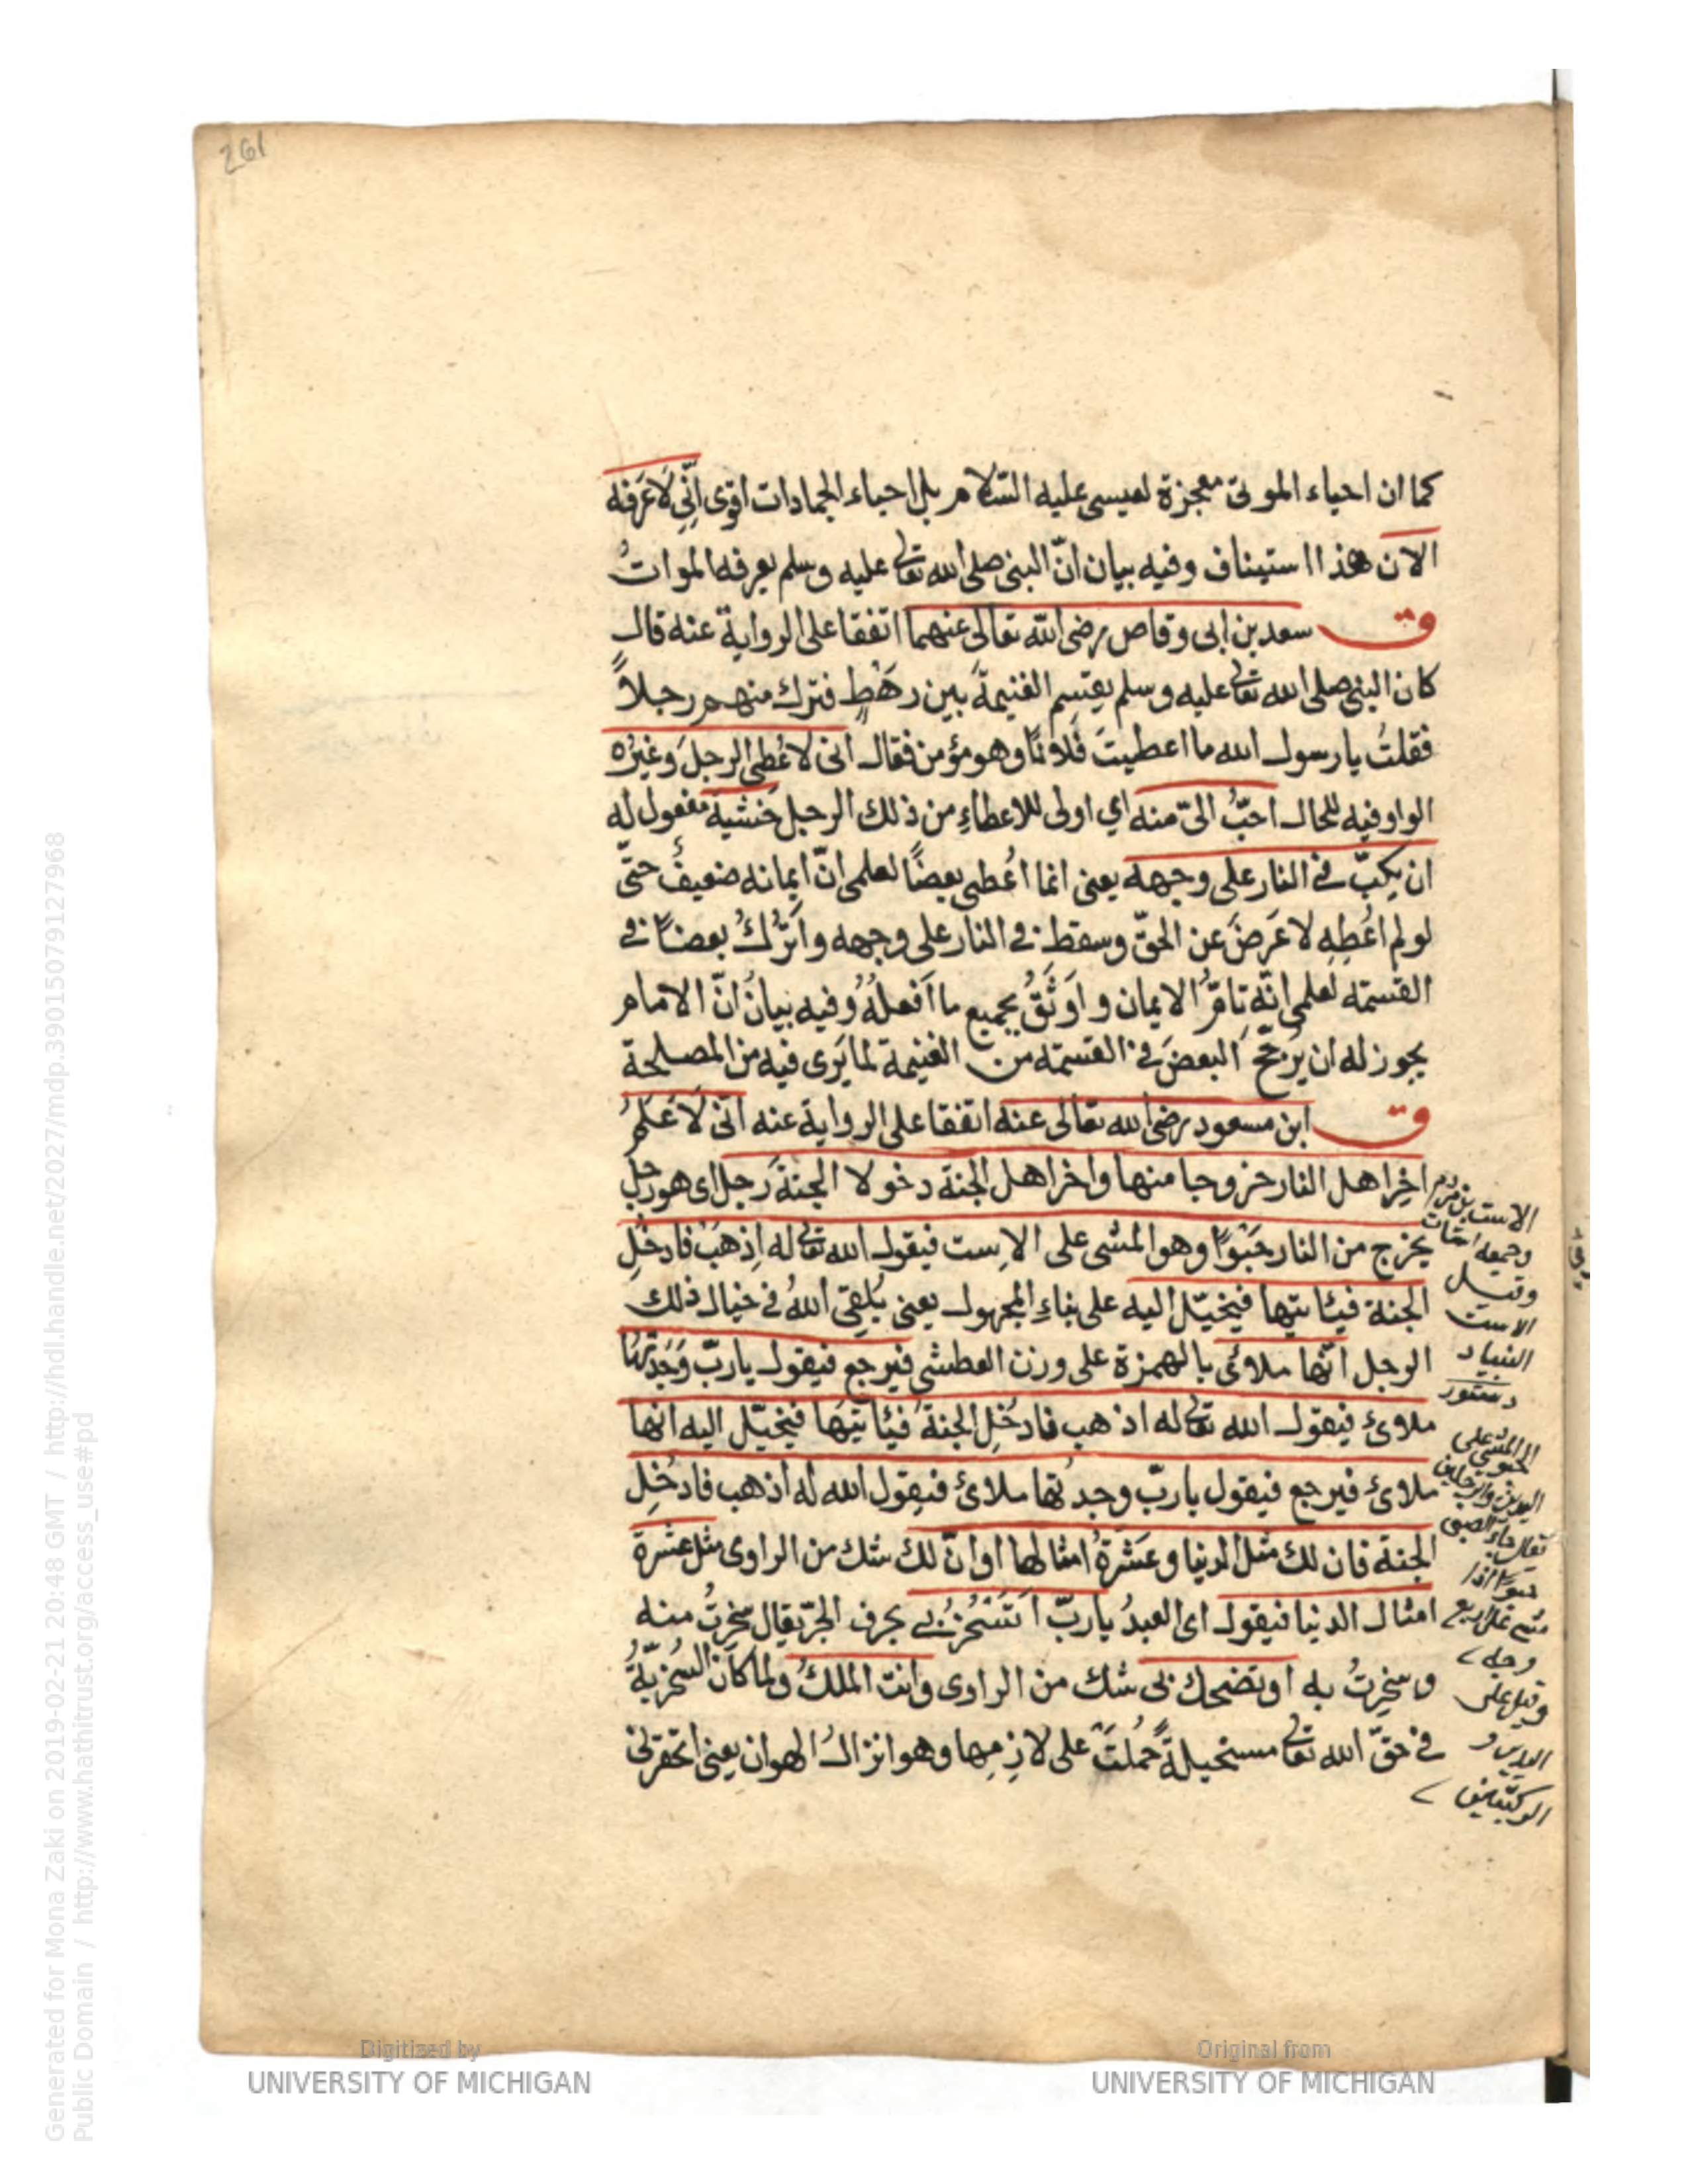 261
كما ان احياء الموتى معجزة لعيسى عليه السّلام بل احياء الجمادات اقوى اِنّي لاَعرَفه
الان هذا استيناف وفيه بيان انّ النبى صلى الله تعالى عليه وسلم يعرفه الموات
ق سعد بن ابى وقاص رضى الله تعالى عنهما اتفقا على الرواية عنه قال
كان النبى صلى الله تعالى عليه وسلم يقسم الغنيمة بين رهْطٍ فترك منهم رجلاً
فقلتُ يا رسول الله ما اعطيتَ فلاناً وهو مؤمن فقال انى لاعُطى الرجلَ وغيرُه
الواو فيه للحال احبُّ الىّ منه اي اولى للاعطاءِ من ذلك الرجل خشيةَ مفعول له
ان يكبّ فى النار على وجهه يعنى انما اُعطى بعضًا لعلمى انّ ايمانه ضعيفٌ حتّى
لو لم اعُطِهِ لاعَرضَ عن الحقّ وسقط فى النار على وجهه واَترُكُ بعضاً فى
القسمة لعلمى انّه تامُّ الايمان واَوثَقُ بجميع ما اَفعلُهُ وفيه بيانُ انّ الامام
يجوز له ان يُرَجّحَ البعضَ فى القسمة من الغنيمة لما يَرى فيه من المصلحة
ق ابن مسعود رضى الله تعالى عنه اتفقا على الرواية عنه انّى لاَعلمُ
اخِر اهل النار خروجا منها واخر اهل الجنة دخولا الجنةَ رجل اى هو رجل
يخرج من النار حَبْوًا وهو المشى على الاِست فيقول الله تعالى له اِذهبْ فادخُلِ
الجنة فيئاتيها فيخيّل اليه على بناءِ المجهول يعنى يُلقِى اللهُ فى خيال ذلك
الرجل انّها ملاوئَ بالهمزة على وزن العطشى فيرجع فيقول يا ربّ وَجَدتُها
ملاوئ فيقول الله تعالى له اذهب فادخُلِ الجنةَ فيئاتيَها فيخيّل اليه انها
ملائ فيرجع فيقول يا ربّ وجدتها ملائ فيقول الله له اذهب فادخُلِ
الجنة فان لك مثل الدنيا وعَشَرةَ امثالها او انّ لك شك من الراوى مثل عشرة
امثال الدنيا فيقول اى العبدُ يا ربّ اَتَسْخَرُ بى بحرف الجرّ يقال سَخِرتُ منه
وسخِرتُ به او تضحك بى شك من الراوى وانت الملكُ ولما كان السُخريّةُ
فى حقّ الله تعالى مستحيلةً حُملتَ على لازِمِها وهو انزالُ الهوان يعنى اتحقرنى
الاست
وجمعه
وقيل
الاست
البنياد
دستور
المشى على
اليدين والرجلين
يقال
حبوًا اذا
مشى على اربع
وجه
وقيل على
اليدين و
الركبتين
Generated for Mona Zaki on 2019-02-21 20:48 GMT / http://hdl.handle.net/2027/mdp.39015079127968
Public Domain / http://www.hathitrust.org/access_use#pd
Digitized by
UNIVERSITY OF MICHIGAN
Original from
UNIVERSITY OF MICHIGAN